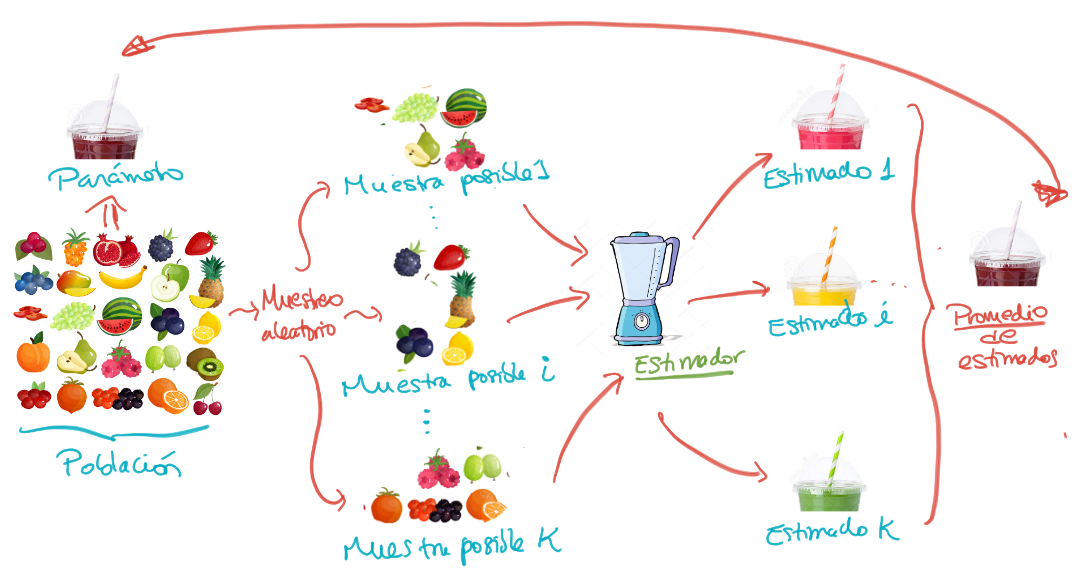 Parámetro
Población
Muestreo
aleatorio
Muestra posible 1
Muestra posible i
Muestra posible K
Estimador
Estimado 1
Estimado i
Estimado K
Promedio
de
estimados